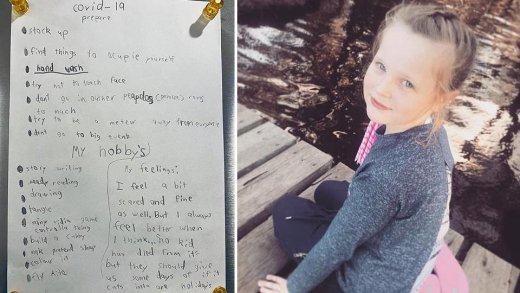 covid-19
prepare
stock up
find things to ocupie yourself
hand wash
try not to touch face
dont go in owner
to much
try to be a meter away from everyone
dont go to big events
My hobby's
story writing
reading
drawing
build a cubby
colour in
fly kite
My feelings:
I feel a bit
scared and fine
as well. But I always
feel better when
I think... no kid
has died from it
but they should give
us some days of if it
cuts into are holidays